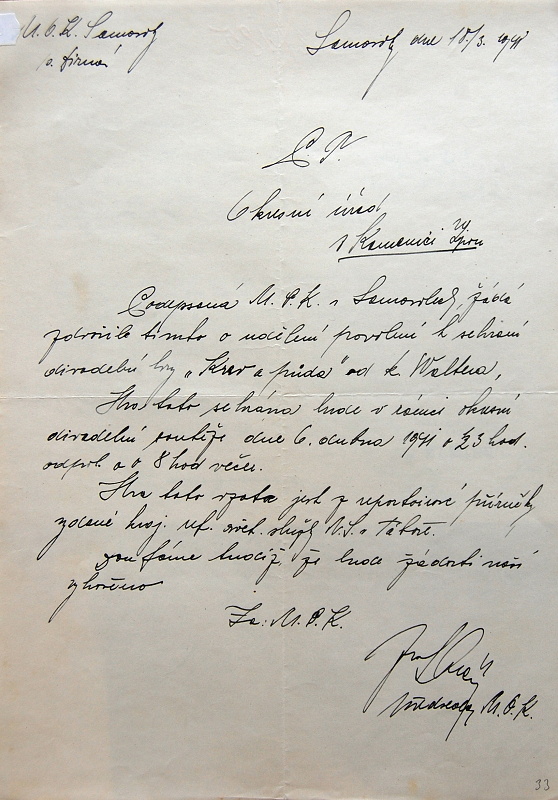 M. O. K. Samosoly
p. Žirov
Samosoly dne 18/3. 1941
C. T.
Okresní úřad
v Kamenici n/Lipou
Podepsaná M. O. K. v Samosolech, žádá
zdvořile tímto o udělení povolení k sehrání
divadelní hry „Krev a půda" od k. Waltera,
Hra tato sehrána bude v rámci okresní
divadelní soutěže dne 6. dubna 1941 o ½3 hod.
odpol. a o 8 hod večer.
Hra tato vzata jest z repertoirové příručky
vydané kraj. ref. svět. služby N.S. v Táboře.
Doufáme tudíž, že bude žádosti naší
vyhověno
Za: M. O. K.
předseda M. O. K.
33